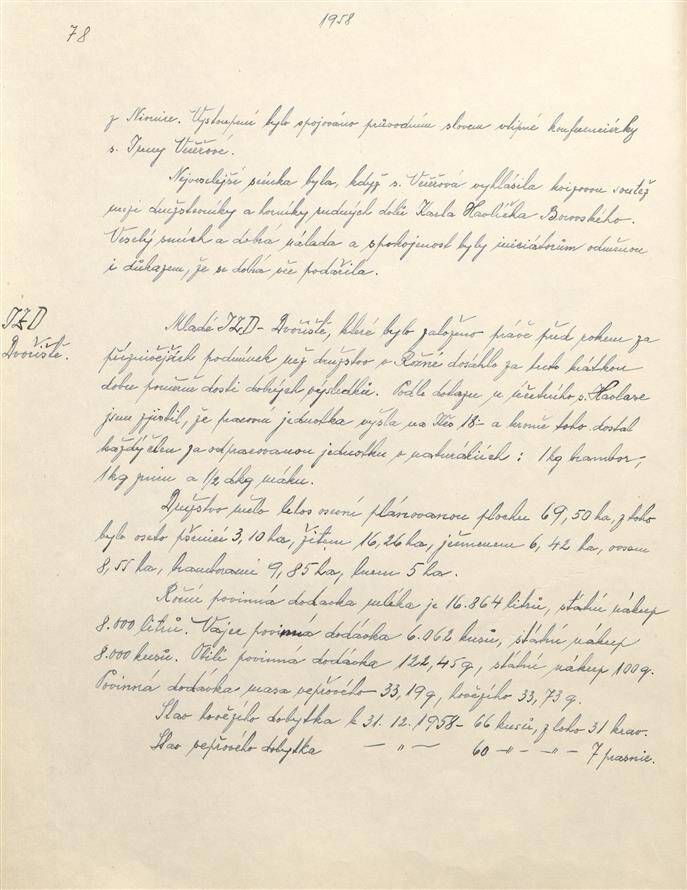 78
1958
z Nivnice. Vystoupení bylo spojováno průvodním slovem vtipné konferenciérky
s. Ireny Vičřové.
Nejveselejší scénka byla, když s. Vičřová vyhlásila kvizovou soutěž
mezi družstevníky a horníky rudných dolů Karla Havlíčka Borovského.
Veselý smích a dobrá nálada a spokojenost byly iniciátorům odměnou
i důkazem, že se dobrá věc podařila.
JZD
Dvořiště.
Mladé JZD - Dvořiště, které bylo založeno právě před rokem za
příznivějších podmínek než družstvo v Rožné dosáhlo za tuto krátkou
dobu poměrně dosti dobrých výsledků. Podle dotazu u účetního s. Havlase
jsem zjistil, že pracovní jednotka vyšla na Kčs 18.- a kromě toho dostal
každý člen za odpracovanou jednotku v naturáliích: 1 kg brambor,
1 kg zrnin a 1/2 dkg máku.
Družstvo mělo letos osevní plánovanou plochu 69,50 ha, z toho
bylo oseto pšenicí 3,10 ha, žitem 16,26 ha, ječmenem 6,42 ha, ovsem
8,55 ha, bramborami 9,85 ha, lnem 5 ha.
Roční povinná dodávka mléka je 16.864 litrů, státní nákup
8.000 litrů. Vajec povinná dodávka 6.062 kusů, státní nákup
8.000 kusů. Obilí povinná dodávka 122,45 q, státní nákup 100 q.
Povinná dodávka masa vepřového 33,19 q, hovězího 33,73 q.
Stav hovězího dobytka k 31. 12. 1958 - 66 kusů, z toho 31 krav.
Stav vepřového dobytka — " — 60 -"- -"- 7 prasnic.